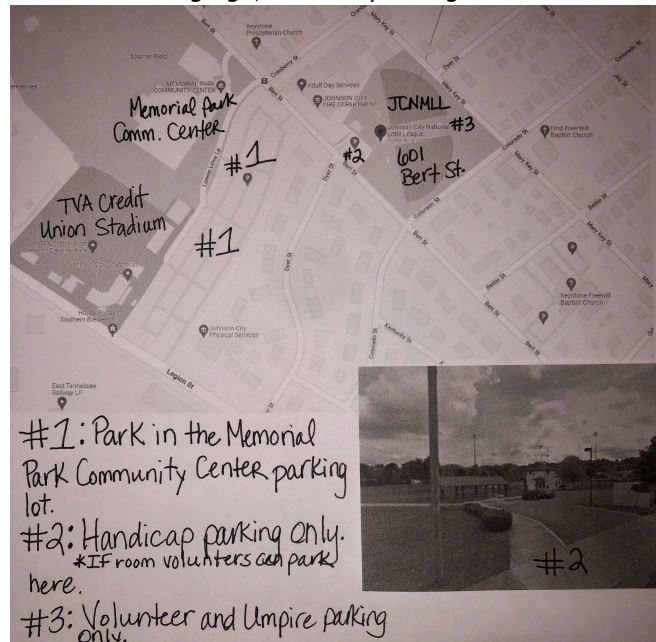 Keystone
Presbyterian Church
Cranberry St
Bert St
Mary Key St
Dyer St
Colorado St
MEMORIAL PARK
COMMUNITY CENTER
Adult Day Services
JOHNSON CITY
FIRE DEPARTMENT
Memorial Park
Comm. Center
JCNMLL
#3
Johnson City National
Little League
First Free Will
Baptist Church
#1
#2
601
Bert St.
Mary Key St
Colorado St
Bettie St
TVA Credit
Union Stadium
#1
Dyer St
Bert St
Keystone Freewill
Baptist Church
Southern Brewer
Johnson City
Physical Services
Kentucky St
Colorado St
Legion St
East Tennessee
Railway LP
#1: Park in the Memorial
Park Community Center parking
lot.
#2: Handicap parking only.
*If room volunters can park
here.
#3: Volunteer and Umpire parking
only.
#2